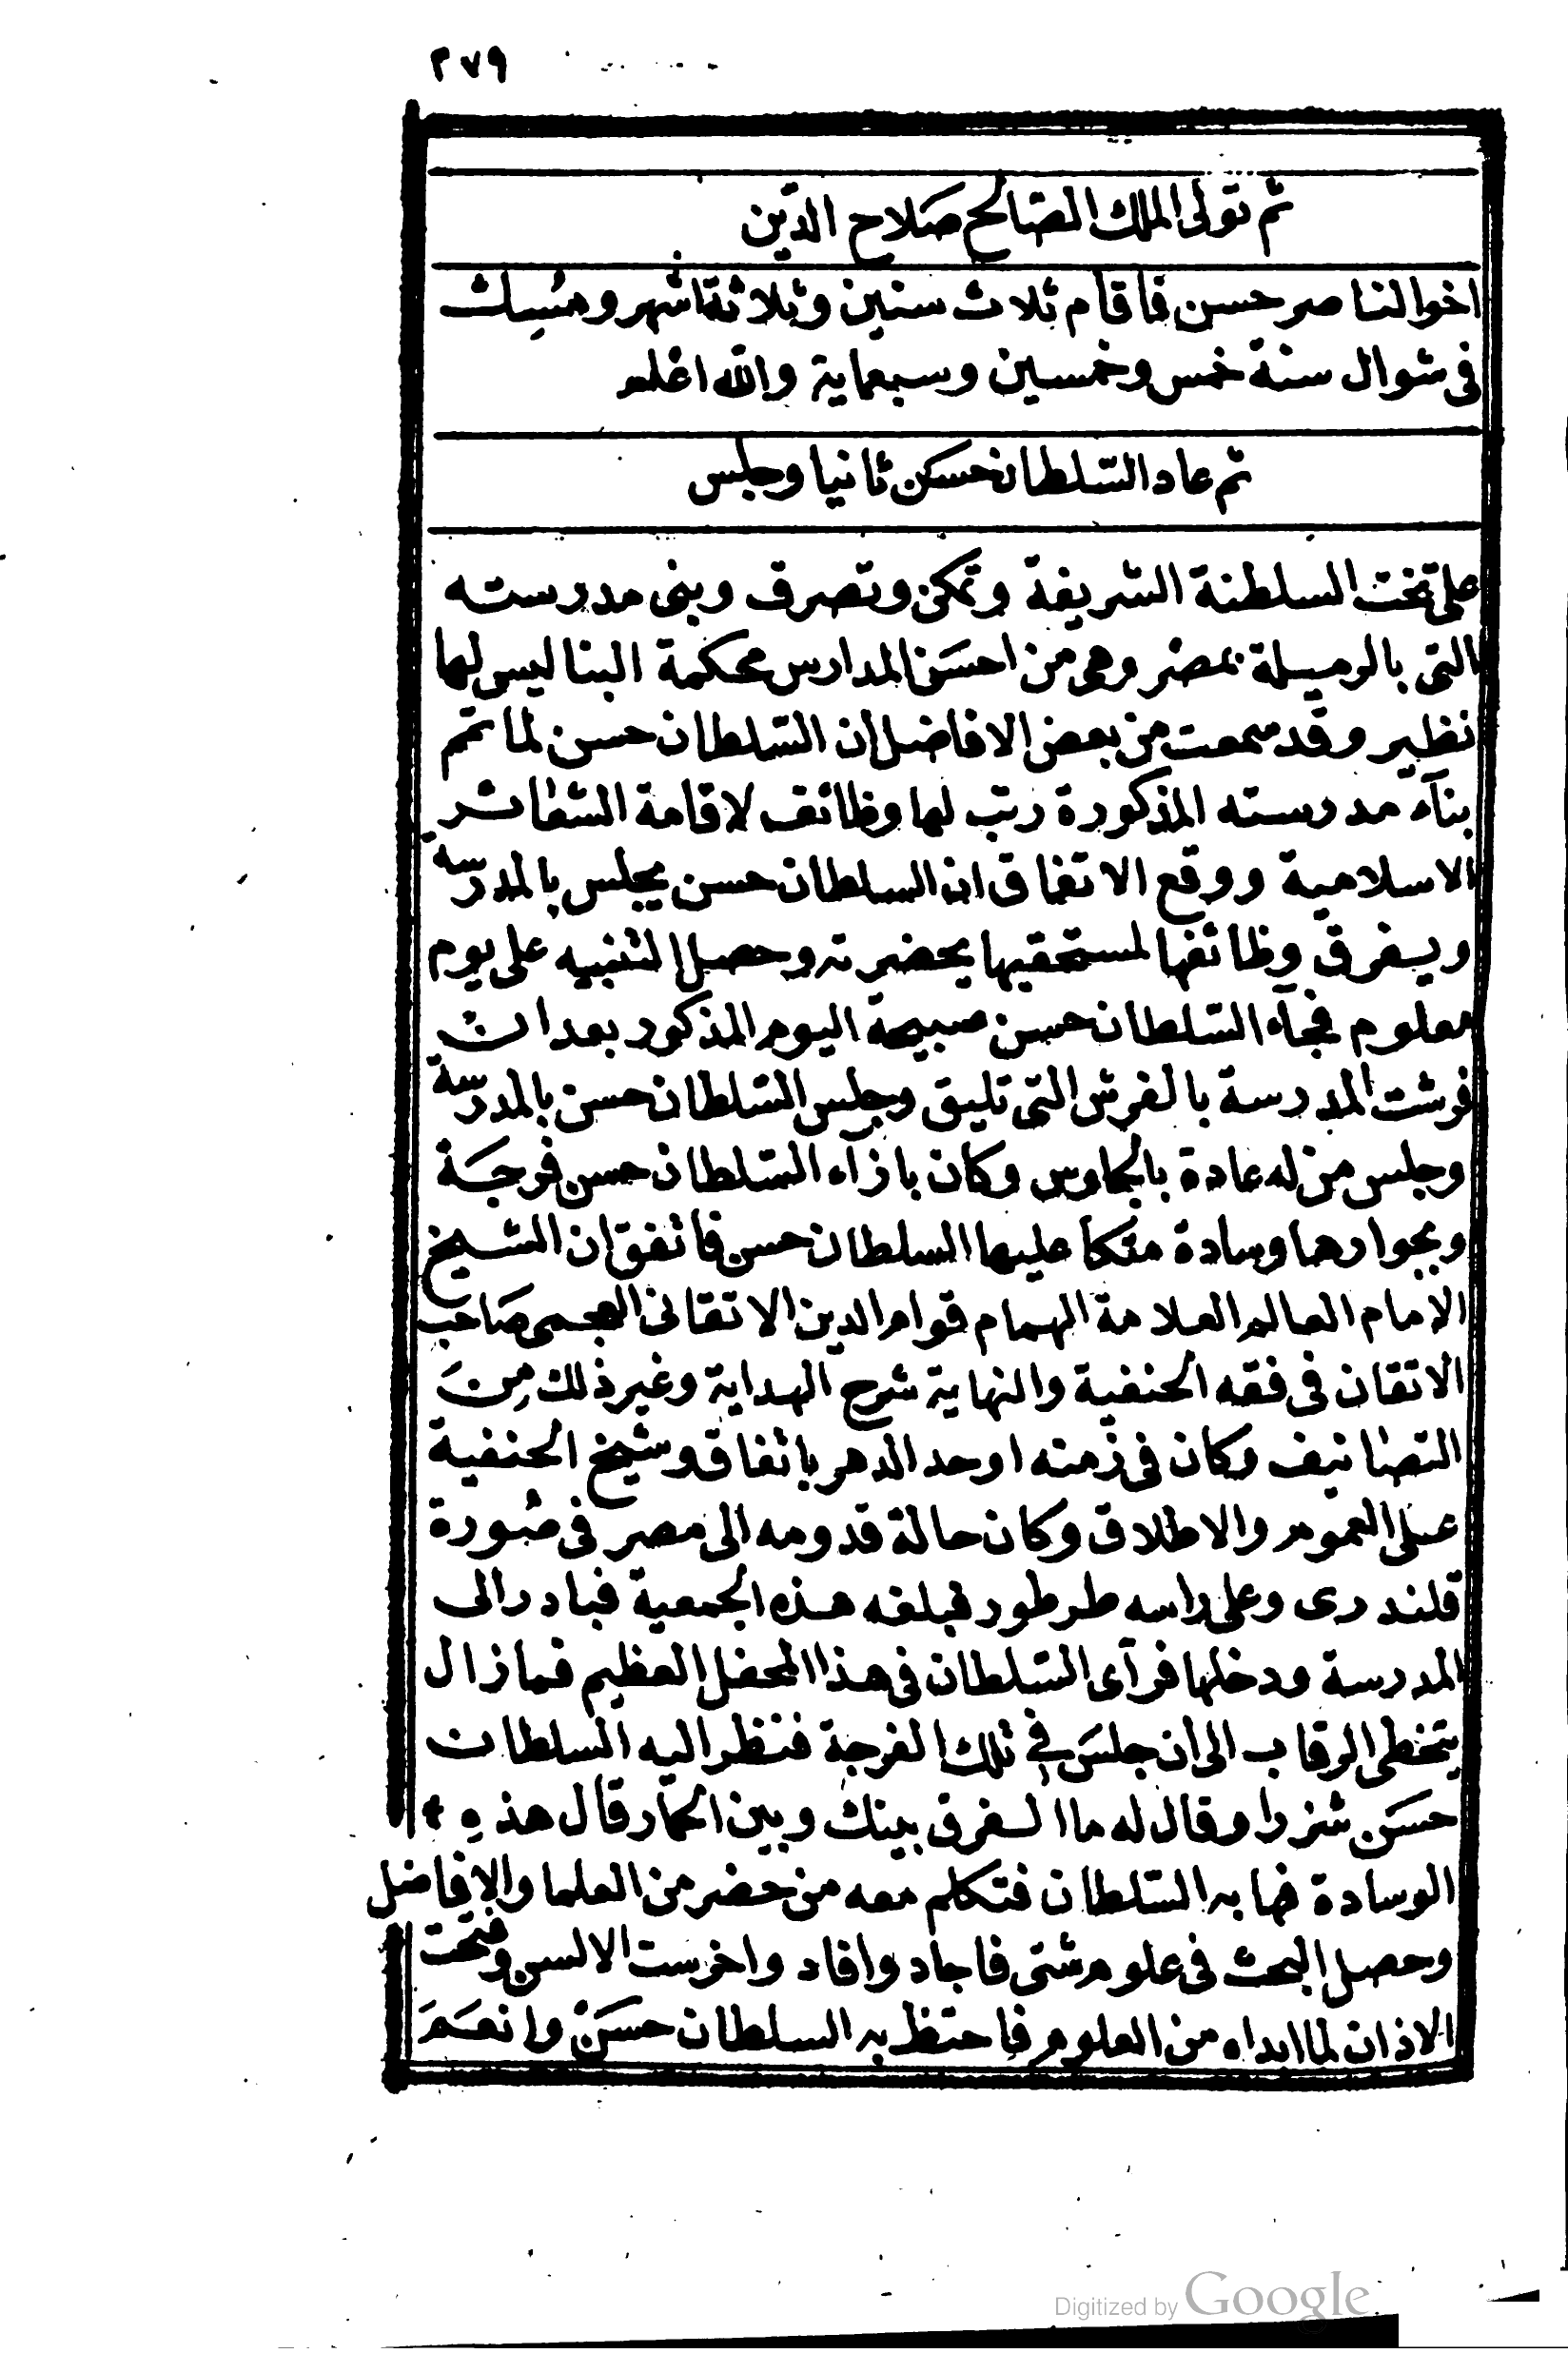 ٢٧٩
ثم تولى الملك الصالح صلاح الدين
اخوالناصر حسن فاقام ثلاث سنين وثلاثة اشهر ومُسِك
فى شوال سنة خمس وخمسين وسبعماية والله اعلم
ثم عاد السّلطان حسَن ثانيا وجلس
على تخت السلطنة الشريفة وتمكن وتصرف وبنى مدرسته
التى بالرميلة بمصر وهى من احسَن المدارس محكمة البنا ليس لها
نظير وقد سمعت من بعض الافاضل ان السّلطان حسن لما تمّم
بنآء مدرسته المذكورة رتب لها وظائف لاقامة الشعائر
الاسلامية ووقع الاتفاق ان السلطان حسن يجلس بالمدرسة
ويفرق وظائفها لمستحقيها بحضرته وحصل التنبيه على يوم
معلوم فجآء السّلطان حسن صبيحة اليوم المذكور بعد ان
فرشت المدرسة بالفرش التى تليق وجلس السّلطان حسن بالمدرسة
وجلس من له عادة بالجلوس وكان بازآء السّلطان حسن فرجَة
وبجوارها وسادة متكأ عليها السلطان حسن فاتفق ان الشيخ
الامام العالم العلامة الهمام قوام الدين الاتقانى العجمى صَاحب
الاتقان فى فقه الحنفية والنهاية شرح الهداية وغير ذلك مِنَ
التصانيف وكان فى زمنه اوحد الدهر باتفاق وشيخ الحنفية
على العموم والاطلاق وكان حالة قدومه الى مصر فى صُورة
قلندرى وعلى راسه طرطور فبلغه هذه الجمعية فبادر الى
المدرسة ودخلها فرآى السّلطان فى هذا المحفل العظيم فمازال
يتخطى الرقاب الى ان جلسَ في تلك الفرجة فنظر اليه السلطان
حسَن شزرا وقال له ما الفرق بينك وبين الحمار قال هذهِ
الوسادة فهابه السّلطان فتكلم معه من حضر من العلما والافاضل
وحصل البحث فى علوم شتى فاجاد وافاد واخرست الالسن وفتحت
الاذان لما ابداه من العلوم فاحتظ به السلطان حسَن وانعَمَ
Digitized by Google